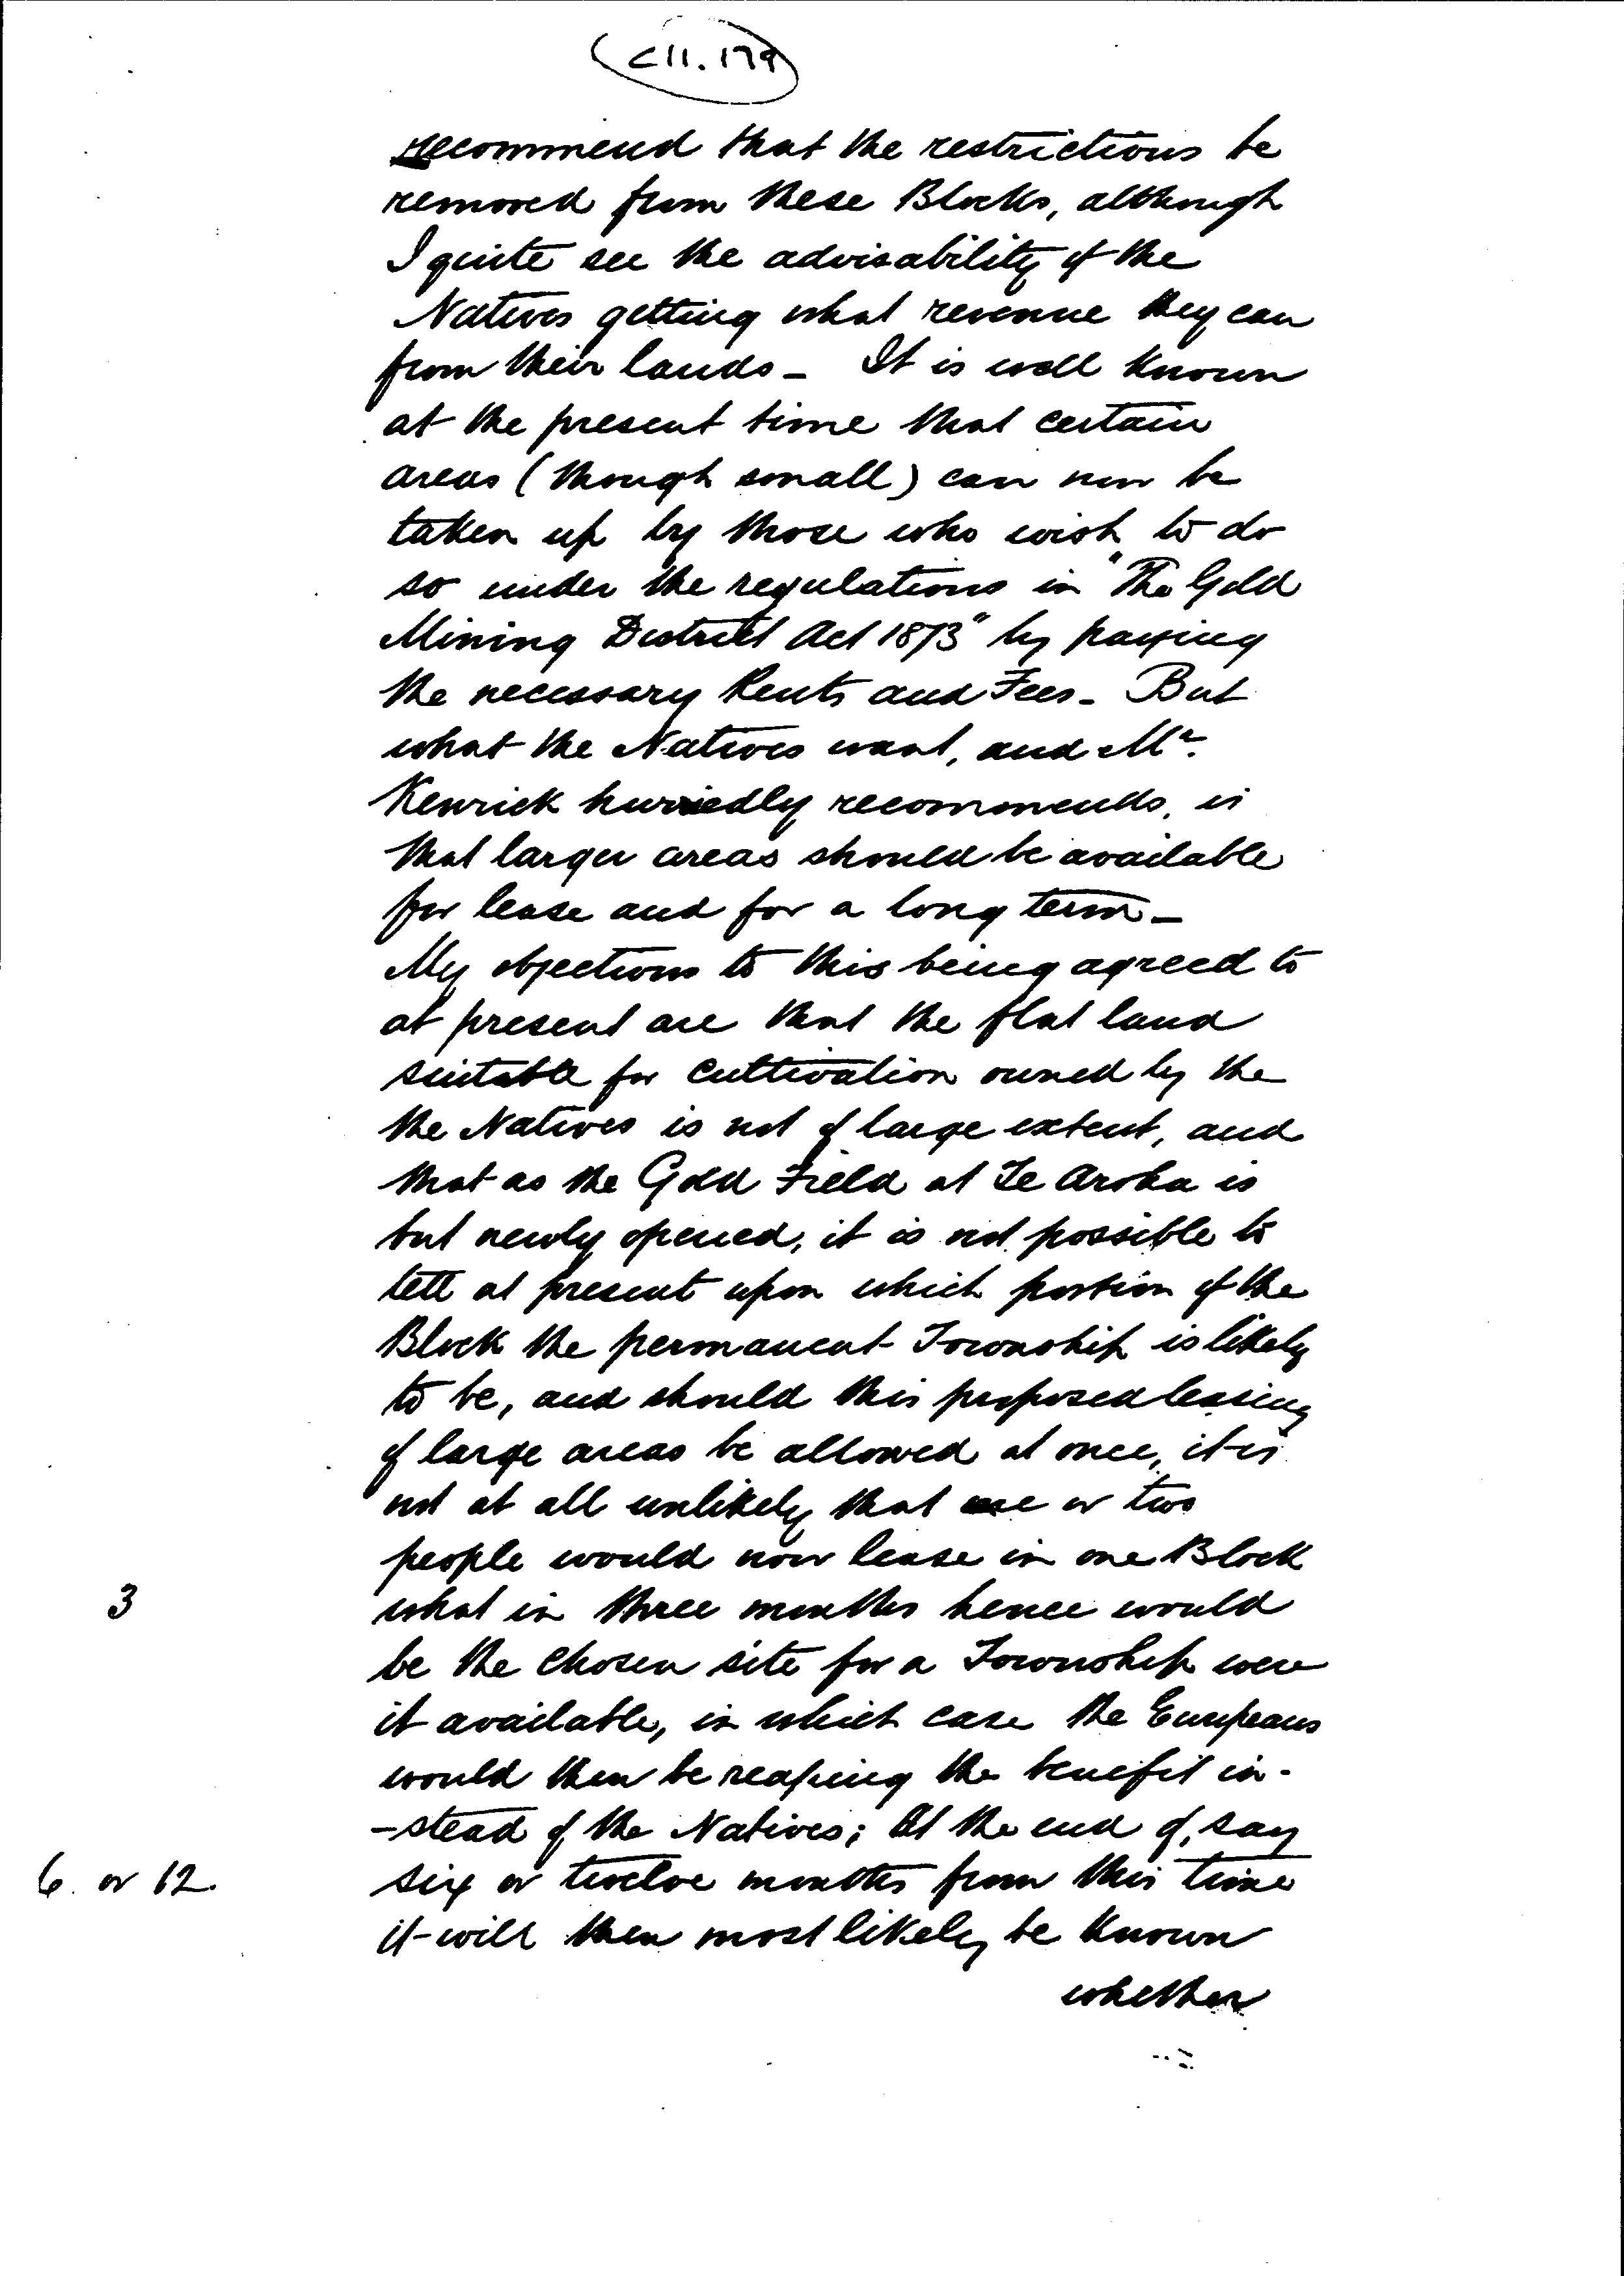 C11.179
recommend that the restrictions be
removed from these Blocks, although
I quite see the advisability of the
Natives getting what revenue they can
from their lands - It is well known
at the present time that certain
areas (though small) can now be
taken up by those who wish to do
so under the regulations in "The Gold
Mining District Act 1873" by paying
the necessary Rents and Fees - But
what the Natives want, and Mr.
Kenrick hurriedly recommends, is
that larger areas should be available
for lease and for a long term -
My objections to this being agreed to
at present are that the flat land
suitable for cultivation owned by the
the Natives is not of large extent, and
that as the Gold Field at Te Aroha is
but newly opened, it is not possible to
tell at present upon which portion of the
Block the permanent Township is likely
to be, and should this proposed leasing
of large areas be allowed at once, it is
not at all unlikely that one or two
people would now lease in one Block
3
what in three months hence would
be the chosen site for a Township were
it available, in which case the Europeans
would then be reaping the benefit in-
-stead of the Natives; At the end of, say
6. or 12.
six or twelve months from this time
it will then most likely be known
whether